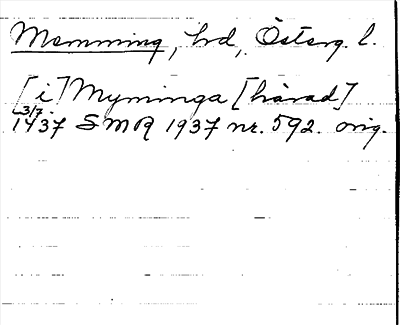 Memming, hd, Österg. l.
[i] Myminga [härad]
3/7
1437 SMR 1937 nr. 592. orig.